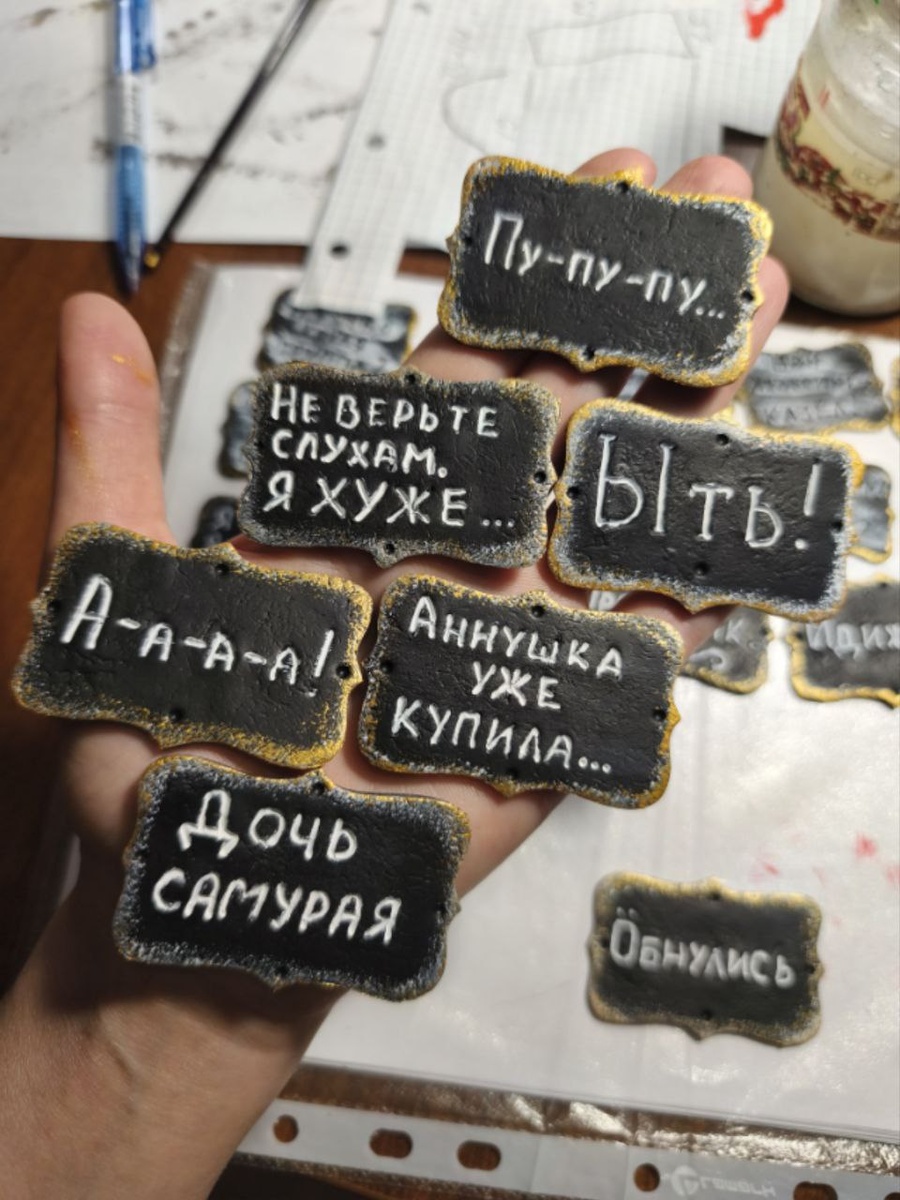 Пу-пу-пу...
НЕ ВЕРЬТЕ
СЛУХАМ.
Я ХУЖЕ...
ЫТЬ!
А-а-а-а!
АННУШКА
УЖЕ
КУПИЛА...
ДОЧЬ
САМУРАЯ
ӦБНУЛИСЬ